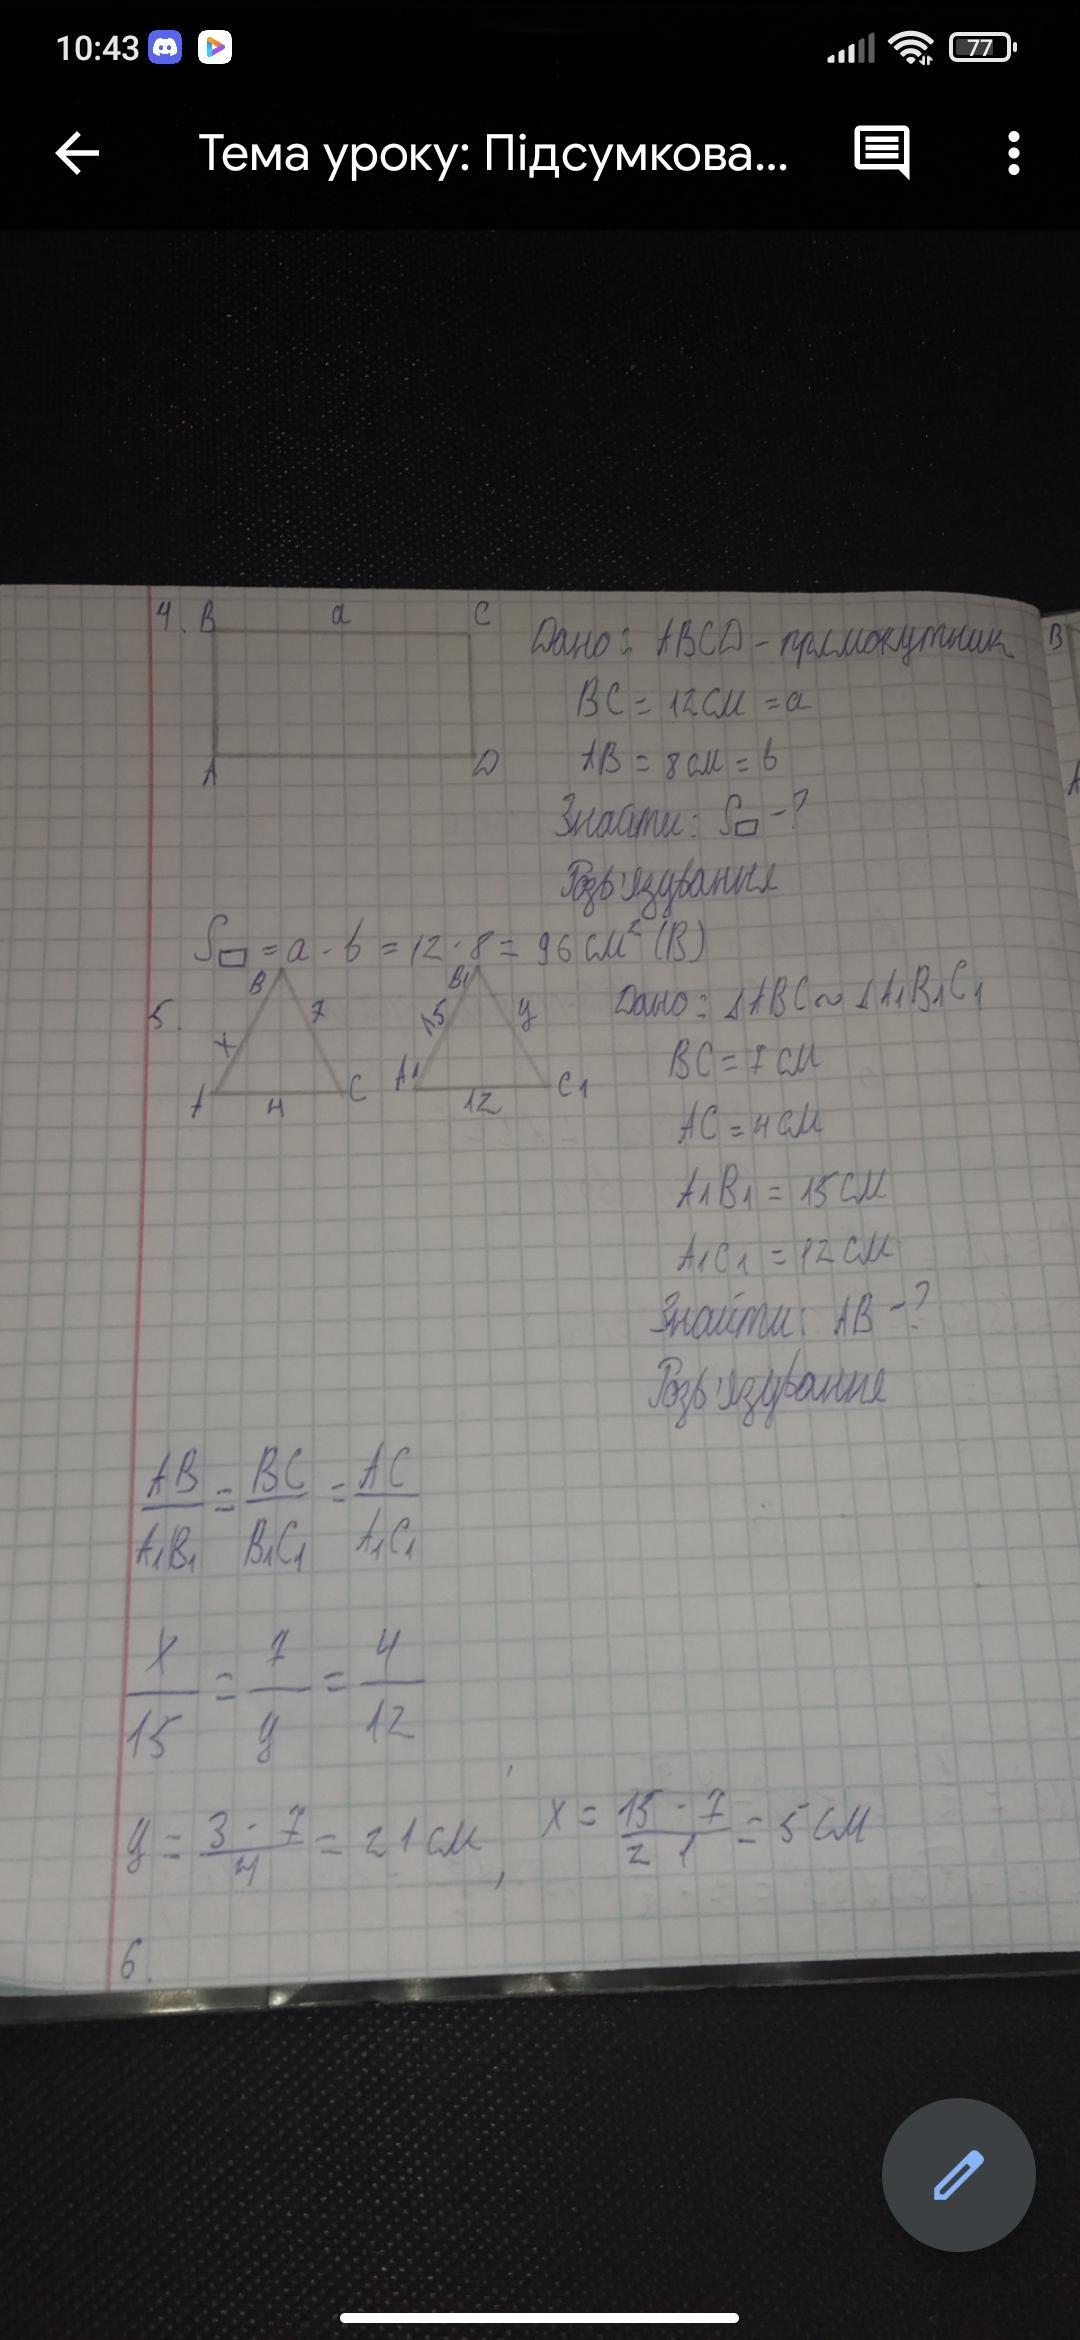 10:43
77
Тема уроку: Підсумкова...
4. B a C
A D
Дано: ABCD - прямокутник
BC = 12 см = a
AB = 8 см = b
Знайти: S▭ - ?
Розв'язування
S▭ = a · b = 12 · 8 = 96 см² (В)
5.
B
x 7
A 4 C
B1
15 y
A1 12 C1
Дано: ΔABC ~ ΔA1B1C1
BC = 7 см
AC = 4 см
A1B1 = 15 см
A1C1 = 12 см
Знайти: AB - ?
Розв'язування
AB/A1B1 = BC/B1C1 = AC/A1C1
x/15 = 7/y = 4/12
y = 3 · 7/4 = 21 см, x = 15 · 7/21 = 5 см
6.
B
A